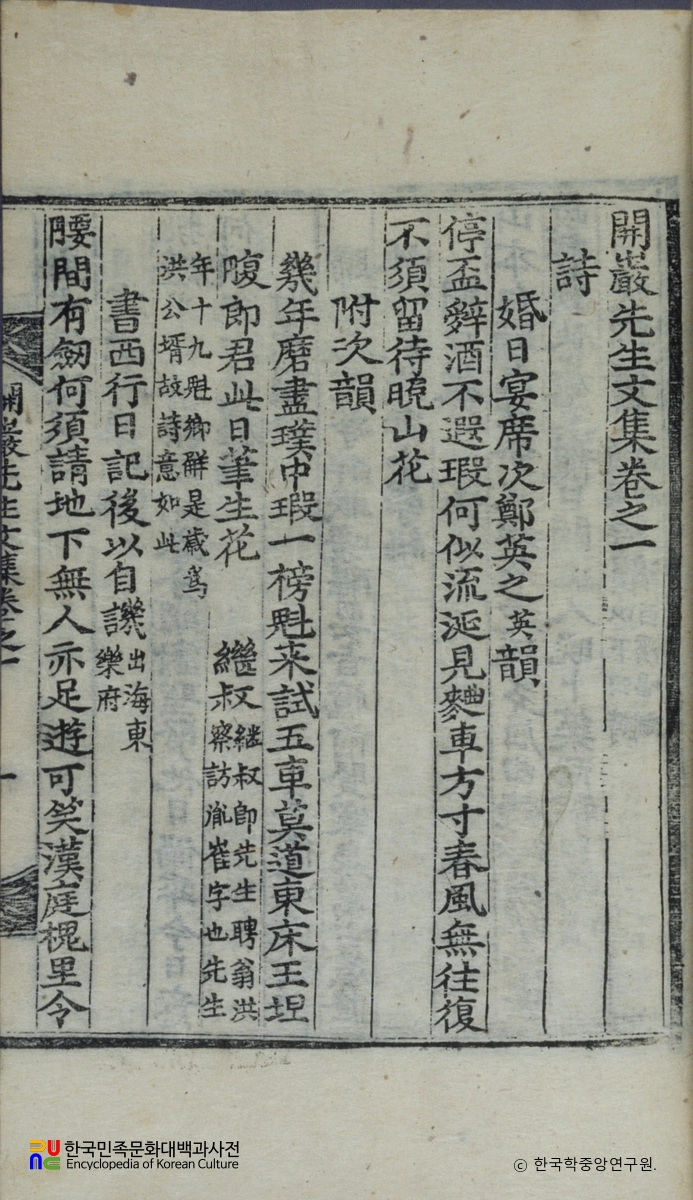 開巖先生文集卷之一
詩
婚日宴席次鄭英之英韻
停盃辭酒不遐瑕何似流涎見麴車方寸春風無往復
不須留待曉山花
附次韻
幾年磨盡璞中瑕一榜魁来試五車莫道東床王坦
腹郎君此日筆生花 繼叔繼叔卽先生聘翁洪
察訪胤崔字也先生
年十九魁鄕解是歲爲
洪公壻故詩意如此
書西行日記後以自譏出海東
樂府
腰間有劒何須請地下無人亦足遊可笑漢庭槐里令
開巖先生文集卷之一 一
한국민족문화대백과사전
Encyclopedia of Korean Culture
ⓒ 한국학중앙연구원.